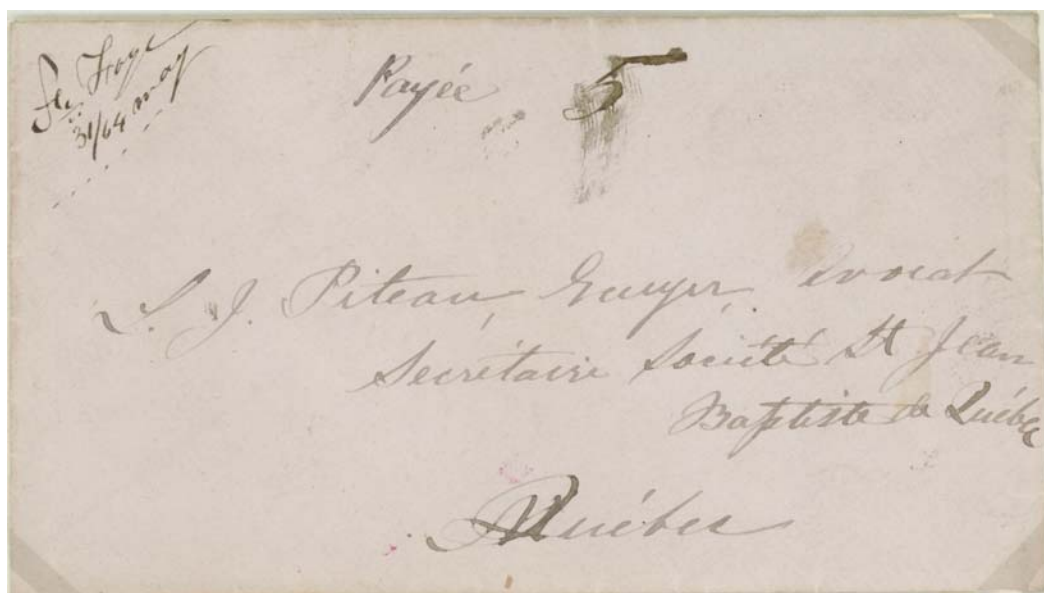 31/64 may
Payée 5
L. J. Piteau, Ecuyer, Avocat
Secrétaire Société St Jean
Baptiste de Québec
Québec